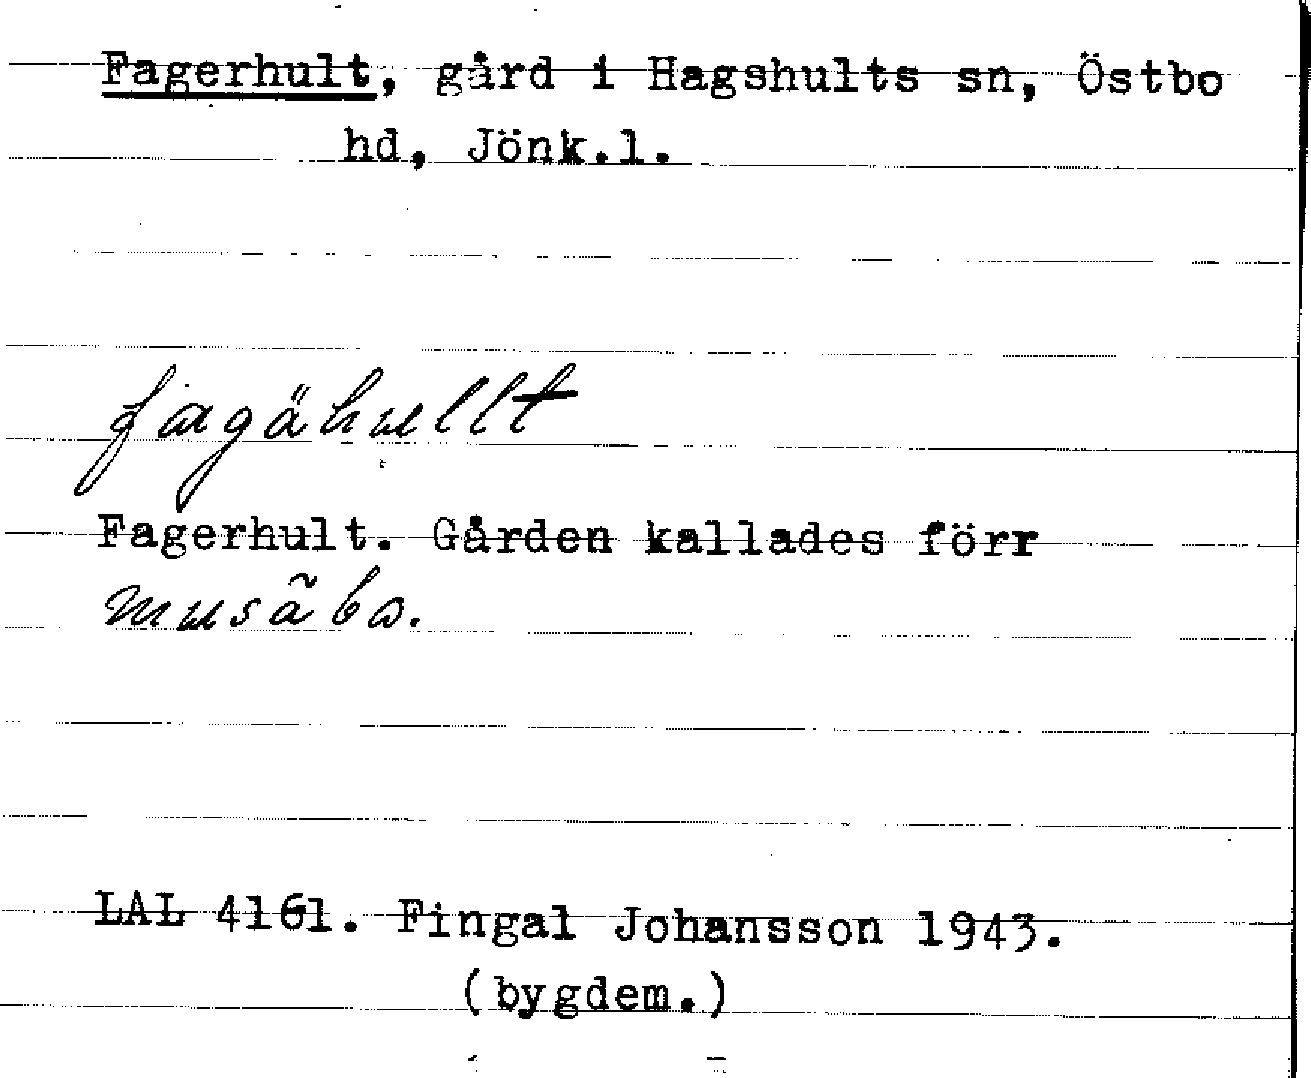 Fagerhult, gård i Hagshults sn, Östbo
hd, Jönk.l.
fagähullt
Fagerhult. Gården kallades förr
musãbo.
LAL 4161. Fingal Johansson 1943.
(bygdem.)